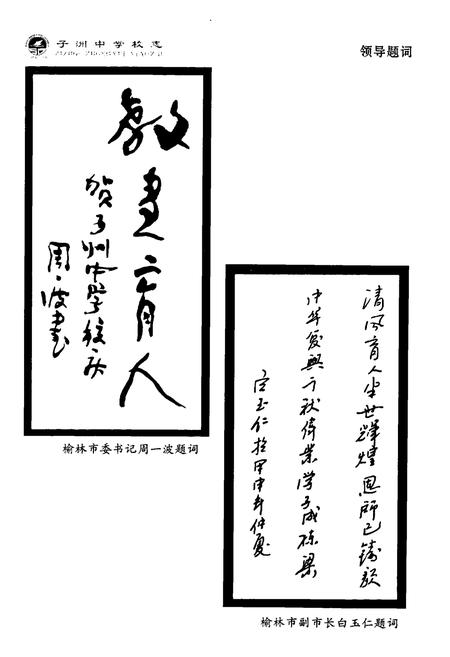 子洲中学校志
ZIZHOU ZHONGXUE XIAOZHI
领导题词
教書育人
贺子洲中学校庆
周一波書
榆林市委书记周一波题词
清风育人半世輝煌恩師已鑄
中华复興千秋偉業学子成栋梁
白玉仁於甲申年仲夏
榆林市副市长白玉仁题词